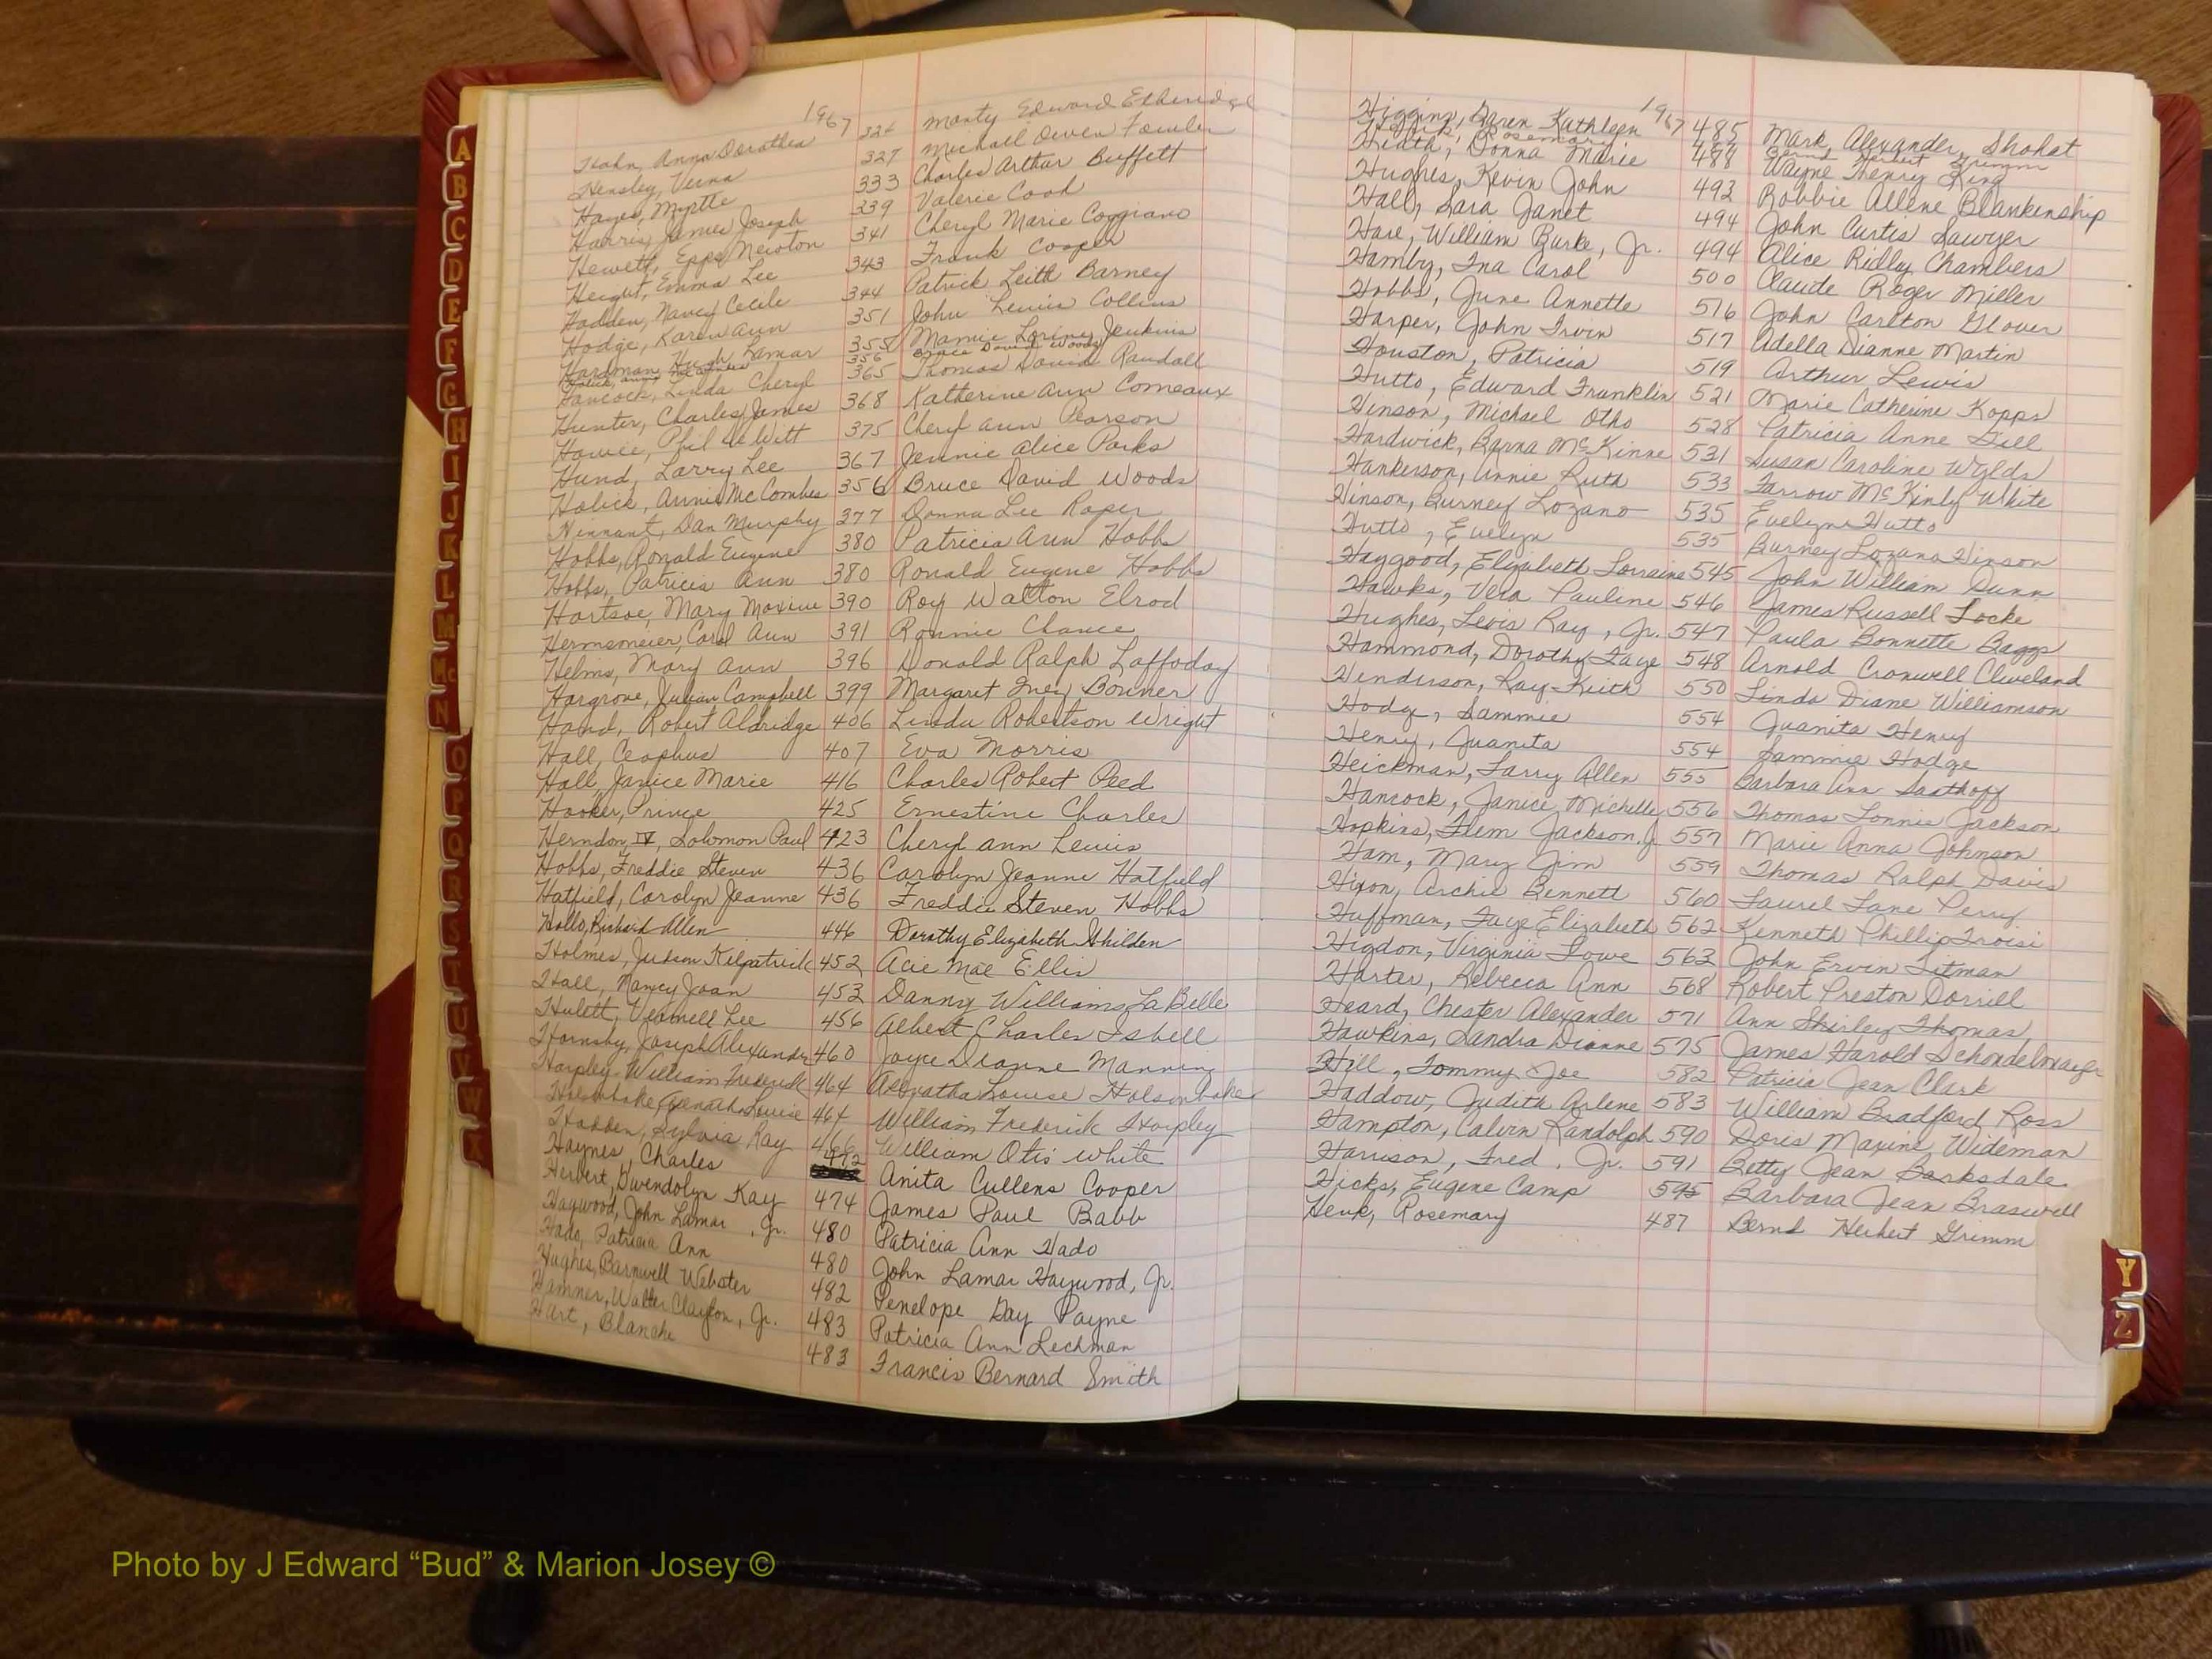 1967
Hahn, Anna Dorothea 324 Marty Edward Etheridge
Hensley, Verna 327 Michael Owen Fowler
Hayes, Myrtle 333 Charles Arthur Buffett
Harris, James Joseph 339 Valerie Cook
Hewett, Epps Newton 341 Cheryl Marie Coggiano
Height, Emma Lee 343 Frank Cooper
Hadden, Nancy Cecile 344 Patrick Leith Barney
Hodge, Karen Ann 351 John Lewis Collins
Hardman, Hugh Lamar 355 Mamie Jenkins
356 Bruce David Woods
Hancock, Linda Cheryl 365 Thomas David Randall
Hunter, Charles James 368 Katherine Ann Comeaux
Howie, Phil DeWitt 375 Cheryl Ann Pearson
Hund, Larry Lee 367 Jennie Alice Parks
Holick, Annie McCombes 356 Bruce David Woods
Hinnant, Dan Murphy 377 Donna Lee Roper
Hobbs, Ronald Eugene 380 Patricia Ann Hobbs
Hobbs, Patricia Ann 380 Ronald Eugene Hobbs
Hartsoe, Mary Maxine 390 Roy Walton Elrod
Hermsmeier, Carol Ann 391 Ronnie Chance
Helms, Mary Ann 396 Donald Ralph Laffoday
Hargrove, Julian Campbell 399 Margaret Inez Bonner
Hand, Robert Aldridge 406 Linda Robertson Wright
Hall, Ceophus 407 Eva Morris
Hall, Janice Marie 416 Charles Robert Peed
Hooker, Prince 425 Ernestine Charles
Herndon IV, Solomon Paul 423 Cheryl Ann Lewis
Hobbs, Freddie Steven 436 Carolyn Jeanne Hatfield
Hatfield, Carolyn Jeanne 436 Freddie Steven Hobbs
Hollo, Richard Allen 446 Dorothy Elizabeth Shilden
Holmes, Judson Kilpatrick 452 Acie Mae Ellis
Hall, Nancy Joan 453 Danny Williams LaBelle
Hulett, Vernell Lee 456 Albert Charles Isbell
Hornsby, Joseph Alexander 460 Joyce Dianne Manning
Harpley William Frederick 464 Asenatha Louise Holsonbake
Holsonbake, Asenatha Louise 464 William Frederick Harpley
Hadden, Sylvia Ray 466 William Otis White
Haynes, Charles 472 Anita Cullens Cooper
Herbert, Gwendolyn Kay 474 James Paul Babb
Haywood, John Lamar, Jr. 480 Patricia Ann Hado
Hado, Patricia Ann 480 John Lamar Haywood, Jr.
Hughes, Barnwell Webster 482 Penelope Day Payne
Hamner, Walter Clayton, Jr. 483 Patricia Ann Lechman
Hart, Blanche 483 Francis Bernard Smith
1967
Higgins, Karen Kathleen 485 Mark Alexander Shohat
Rosemary Bernd Herbert Grimm
Heath, Donna Marie 488 Wayne Henry King
Hughes, Kevin John 492 Robbie Allene Blankenship
Hall, Sara Janet 494 John Curtis Sawyer
Hare, William Burke, Jr. 494 Alice Ridly Chambers
Hamby, Ina Carol 500 Claude Roger Miller
Hobbs, June Annette 516 John Carlton Glover
Harper, John Irvin 517 Adella Dianne Martin
Houston, Patricia 519 Arthur Lewis
Hutto, Edward Franklin 521 Marie Catherine Kopps
Hinson, Michael Otho 528 Patricia Anne Gill
Hardwick, Barna McKinne 531 Susan Caroline Wylds
Hankerson, Annie Ruth 533 Farrow McKinly White
Hinson, Burney Lozano 535 Evelyn Hutto
Hutto, Evelyn 535 Burney Lozano Hinson
Haygood, Elizabeth Lorraine 545 John William Dunn
Hawks, Vera Pauline 546 James Russell Locke
Hughes, Levis Ray, Jr. 547 Paula Bonnette Baggs
Hammond, Dorothy Faye 548 Arnold Cronwell Cleveland
Henderson, Ray Keith 550 Linda Diane Williamson
Hodg, Sammie 554 Juanita Henry
Henry, Juanita 554 Sammie Hodge
Heickman, Larry Allen 555 Barbara Ann Sasthoff
Hancock, Janice Michelle 556 Thomas Lonnie Jackson
Hopkins, Flem Jackson, Jr. 557 Marie Anna Johnson
Ham, Mary Jim 559 Thomas Ralph Davis
Hixon, Archie Bennett 560 Laurel Lane Perry
Huffman, Faye Elizabeth 562 Kenneth Phillip Troisi
Higdon, Virginia Lowe 563 John Ervin Titman
Harter, Rebecca Ann 568 Robert Preston Dorrill
Heard, Chester Alexander 571 Ann Shirley Thomas
Hawkins, Sandra Dianne 575 James Harold Schondelmayer
Hill, Tommy Joe 582 Patricia Jean Clark
Haddow, Judith Arlene 583 William Bradford Ross
Hampton, Calvin Randolph 590 Doris Maxine Wideman
Harrison, Fred, Jr. 591 Betty Jean Barksdale
Hicks, Eugene Camp 595 Barbara Jean Braswell
Henk, Rosemary 487 Bernd Herbert Grimm
A
B
C
D
E
F
G
H
I
J
K
L
M
Mc
N
O
P
Q
R
S
T
U
V
W
X
Y
Z
Photo by J Edward “Bud” & Marion Josey ©